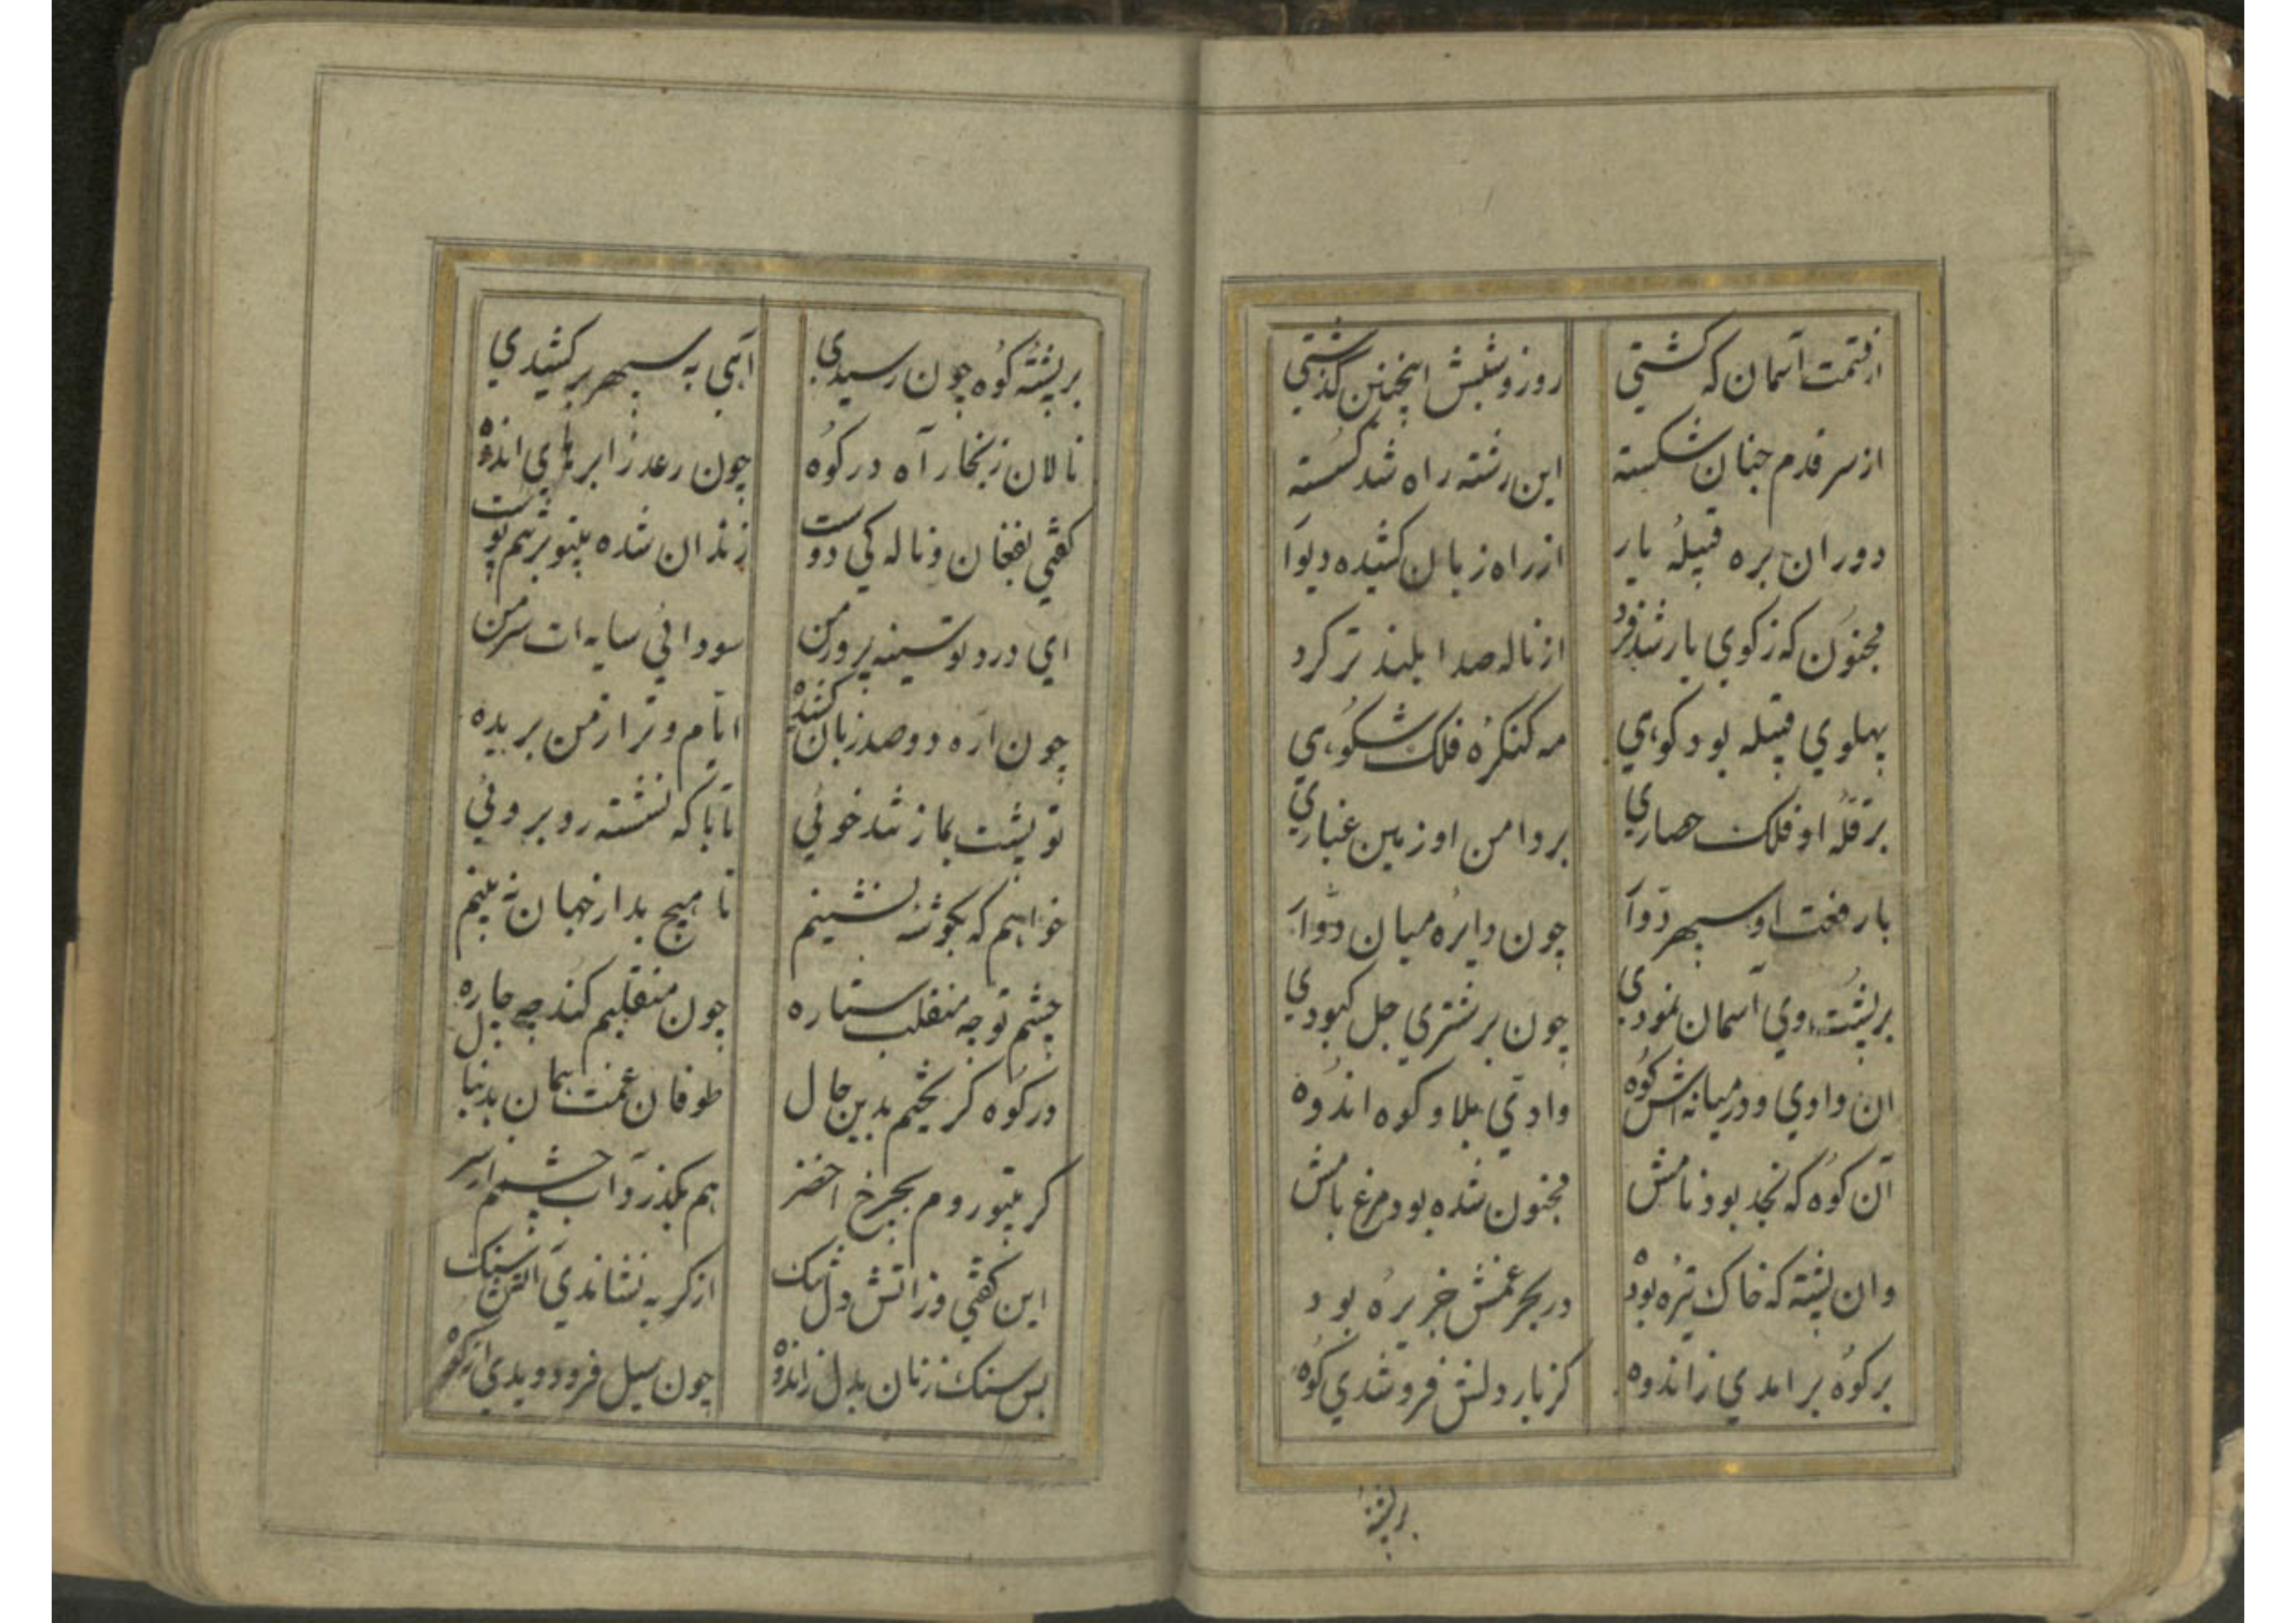 از قسمت آسمان که گشتی روز و شبش اینچنین گذشتی
از سر قدم چنان شکسته این رشته راه شد گسسته
دوران بره قبیلهٔ یار از راه زبان کشیده دیوار
مجنون که ز کوی یار شد فرد از ناله صدا بلند تر کرد
پهلوی قبیله بود کوهی مه کنکرهٔ فلک شکوهی
بر قلهٔ او فلک حصاری بر دامن او زمین غباری
با رفعت او سپهر دوار چون دایره میان دوار
بر پشت وی آسمان نمودی چون بر شتری جل کبودی
ان وادی و در میانه اش کوه وادی بلا و کوه اندوه
آن کوه که نجد بود نامش مجنون شده بود مرغ بامش
وان پشته که خاک تیره بود در بحر غمش جزیره بود
بر کوه بر امدی ز اندوه کز بار دلش فرو شدی کوه
بر پشته
بر پشته کوه چون رسیدی آهی به سپهر بر کشیدی
نالان ز بخار آه در کوه چون رعد ز ابرهای اندوه
کفتی بفغان و ناله کی دوست زندان شده بیتو بر تنم پوست
ای درد تو سینه پرور من سودائی سایه ات سر من
چون اره دو صد زبان کشیده ایام و ترا ز من بریده
تو پشت بما ز تند خوئی تا با که نشسته رو بروئی
خواهم که بکوشهٔ نشینم تا هیچ بد از جهان نه بینم
چشم تو چه منقلب ستاره چون منقلبم کند چه چاره
در کوه کریختم بدین حال طوفان غمت همان بدنبال
کر بیتو روم بچرخ اخضر هم بکذرد آب چشمم از سر
این کفتی و ز اتش دل تنک از کریه نشاندی آتش سنک
بس سنک زنان بدل ز اندوه چون سیل فرو دویدی از کوه